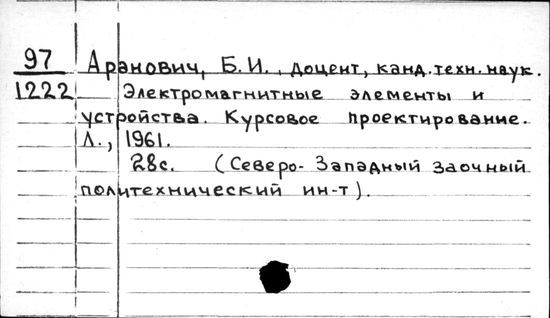 97 Аранович, Б.И., доцент, канд.техн.наук.
1222 Электромагнитные элементы и
устройства. Курсовое проектирование.
Л., 1961.
28с. (Северо-Западный заочный
политехнический ин-т).